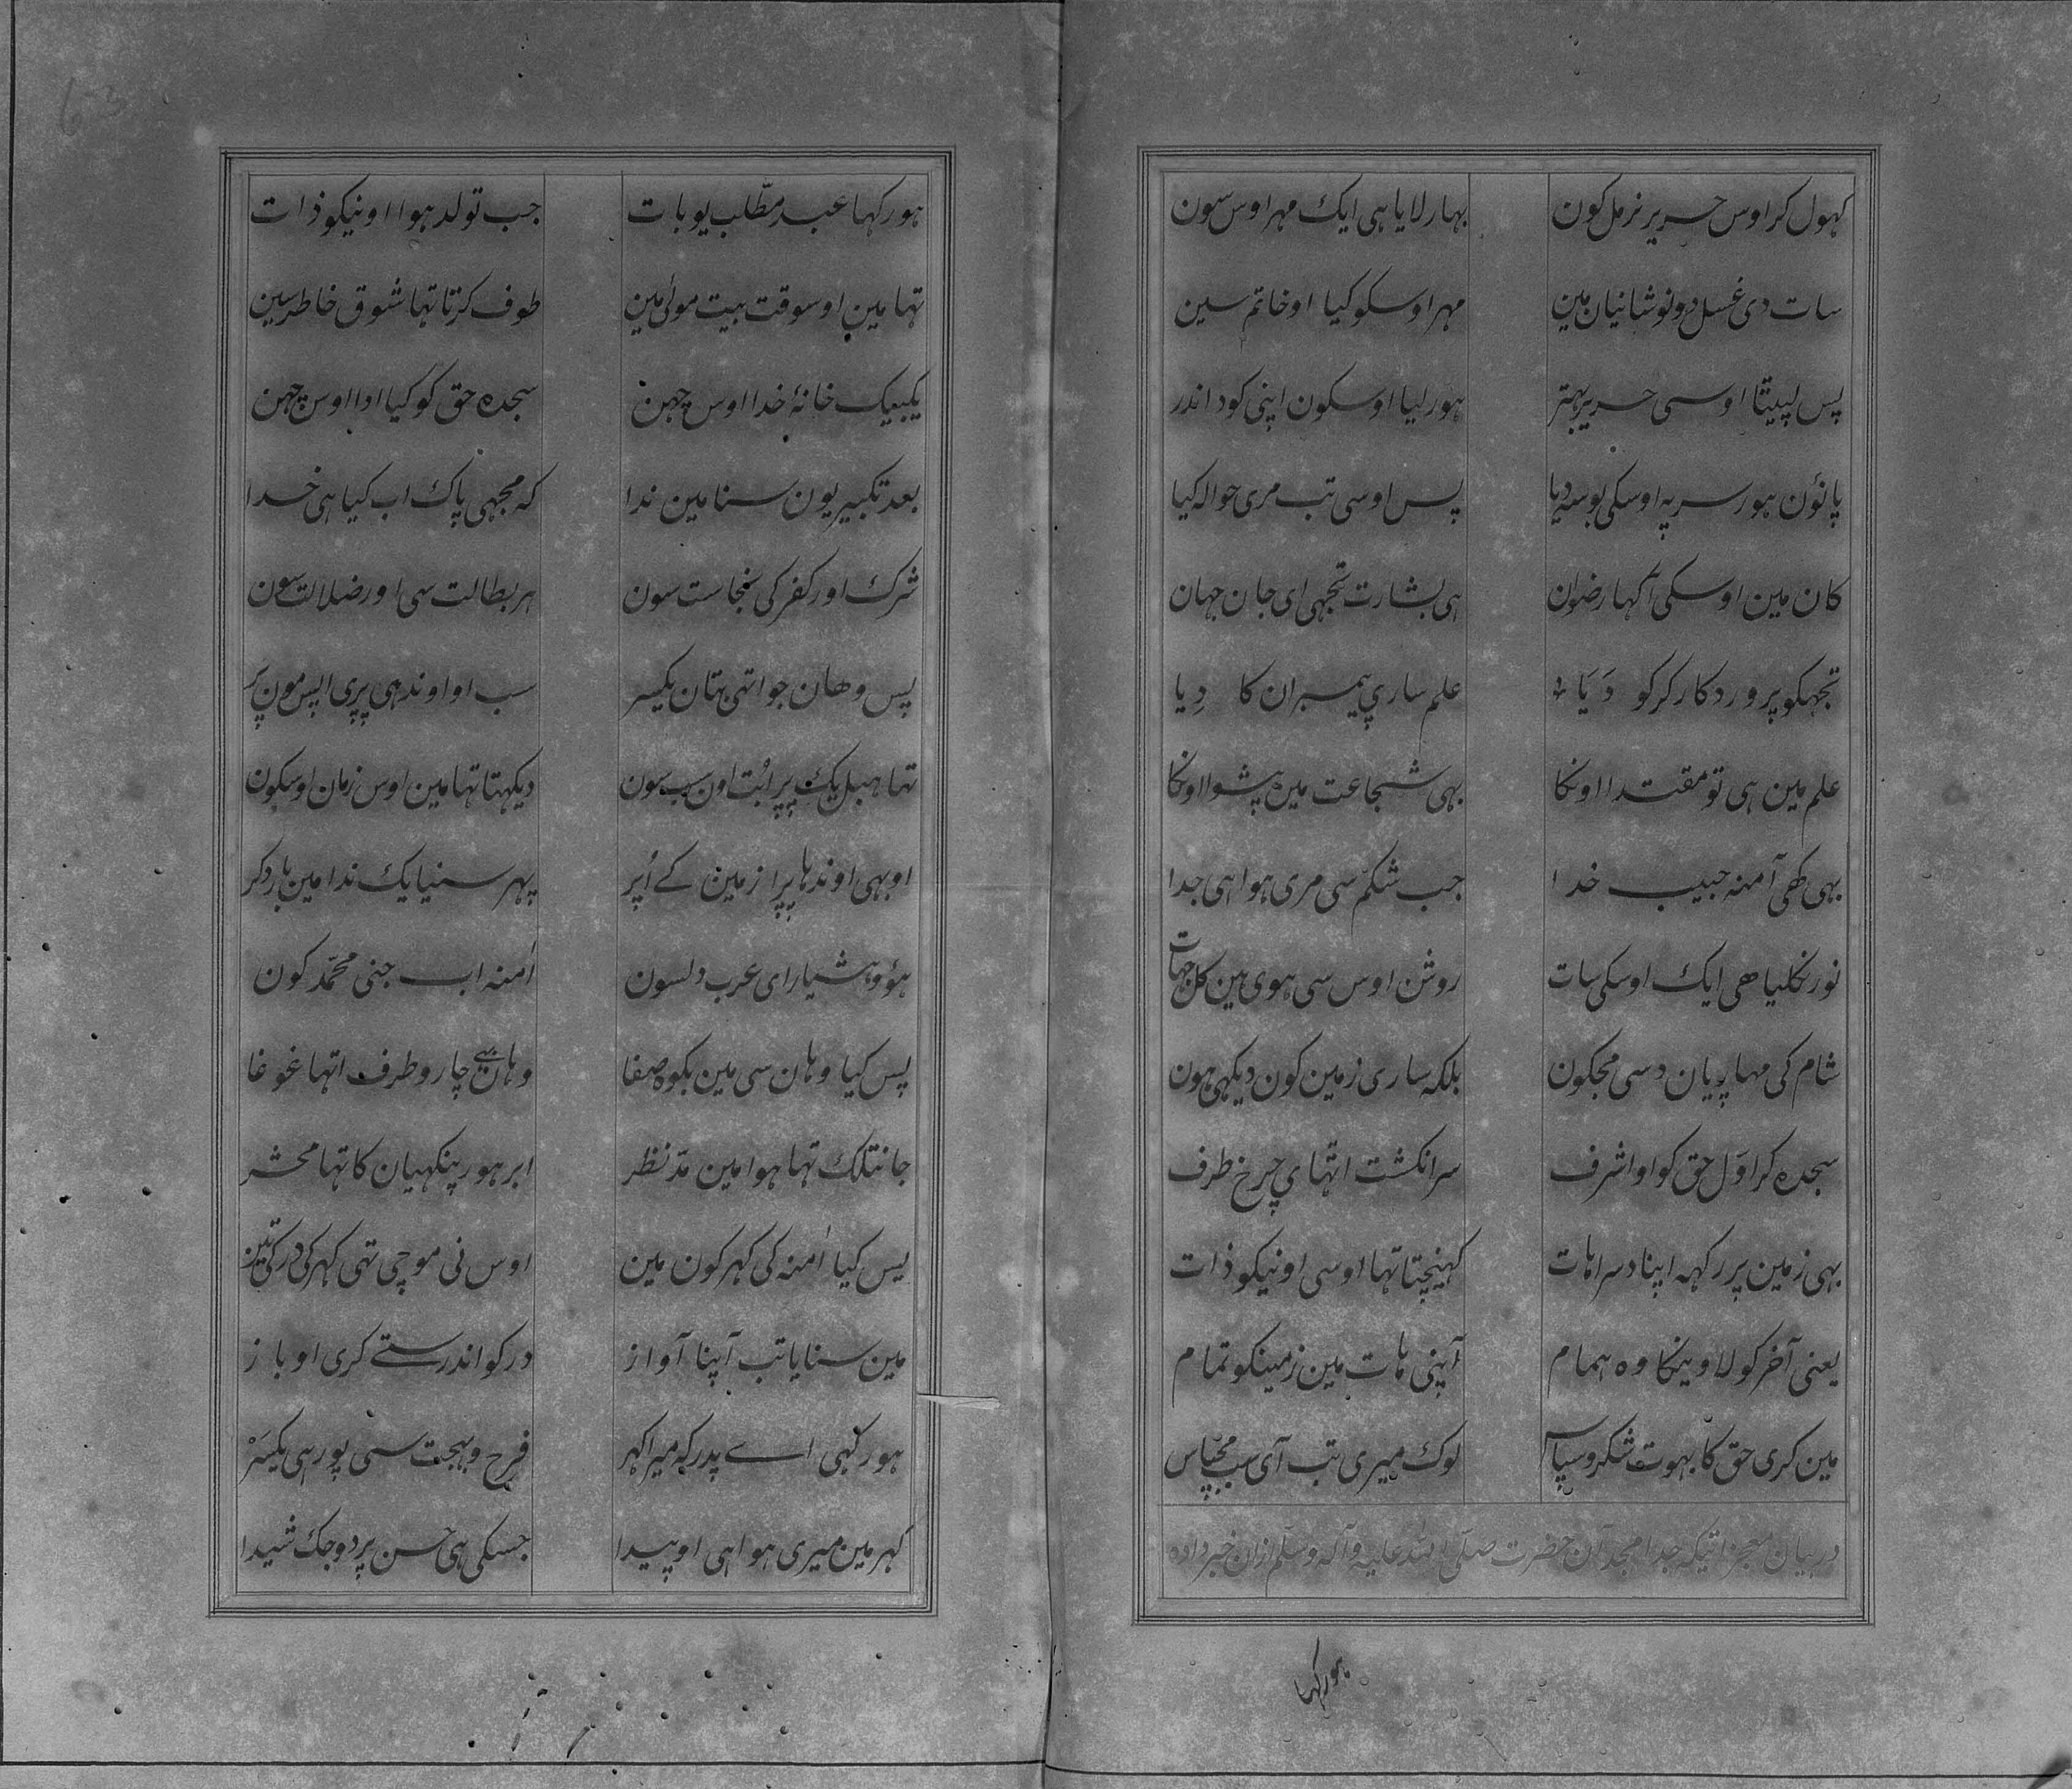 کهول کر اوس حریر نرمل کون بهار لایا هی ایک مهر اوس سون
سات دی غسل دونو شانیان مین مهر اوسکو کیا او خاتم سین
پس لپیتا اوسی حریر بهتر هور لیا اوسکون اپنی کود اندر
پانؤن هور سر په اوسکی بوسه دیا پس اوسی تب مری حواله کیا
کان مین اوسکی کها رضوان هی بشارت تجهی ای جان جهان
تجهکو پروردکار کر کو دَیَا علم ساری پیمبران کا دِیا
علم مین هی تو مقتدا اونکا بهی شجاعت مین پیشوا اونکا
بهی کهی آمنه حبیب خدا جب شکم سی مری هوا هی جدا
نور نکلیا هی ایک اوسکی سات روشن اوس سی هوی هین کل جهات
شام کی مهاپریان دسی مجکون بلکه ساری زمین کون دیکهی هون
سجده کر اوّل حق کو او اشرف سر انکشت اتهای چرخ طرف
بهی زمین پر رکهه اپنا دسرا هات کهینچتا تها اوسی او نیکو ذات
یعنی آخر کو لاوینکا وه همام آپنی هات مین زمینکو تمام
مین کری حق کا بهوت شکر و سپاس لوک میری تب آی سب مجپاس
در بیان معجزاتیکه جد امجد آن حضرت صلّی الله علیه وآله وسلّم ازان خبر داده
هور کها
هور کها عبد مطّلب یو بات جب تولد هوا او نیکو ذات
تها مین اوسوقت بیت مولی مین طوف کرتا تها شوق خاطر سین
یکبیک خانهٔ خدا اوس چهن سجده حق کو کیا ادا اوس چهن
بعد تکبیر یون سنا مین ندا که مجهی پاک اب کیا هی خدا
شرک اور کفر کی نجاست سون هر بطالت سی اور ضلالت سون
پس وهان جو اتهی بتان یکسر سب او اوندهی پری اپس مون پر
تها هبل یک پرا بُت اون سب سون دیکهتا تها مین اوس زمان اوسکون
او بهی اوندها پرا زمین کے اُپر پهر سنیا یک ندا مین بار دکر
هؤو هشیار ای عرب دلسون اٰمنه اب جنی محمّد کون
پس کیا وهان سی مین بکوه صفا وهان بهی چارو طرف اتها غوغا
جانتلک تها هوا مین مدّ نظر ابر هور پنکهیان کا تها محشر
پس کیا اٰمنه کی کهر کون مین اوس نی موچی تهی کهر کی در کی تین
مین سنایا تب آپنا آواز در کو اندر ستے کری او باز
هور کهی اے پدر که میرا کهر فرح و بهجت ستی پور هی یکسَرْ
کهر مین میری هوا هی او پیدا جسکی هی حسن پر دو جک شیدا